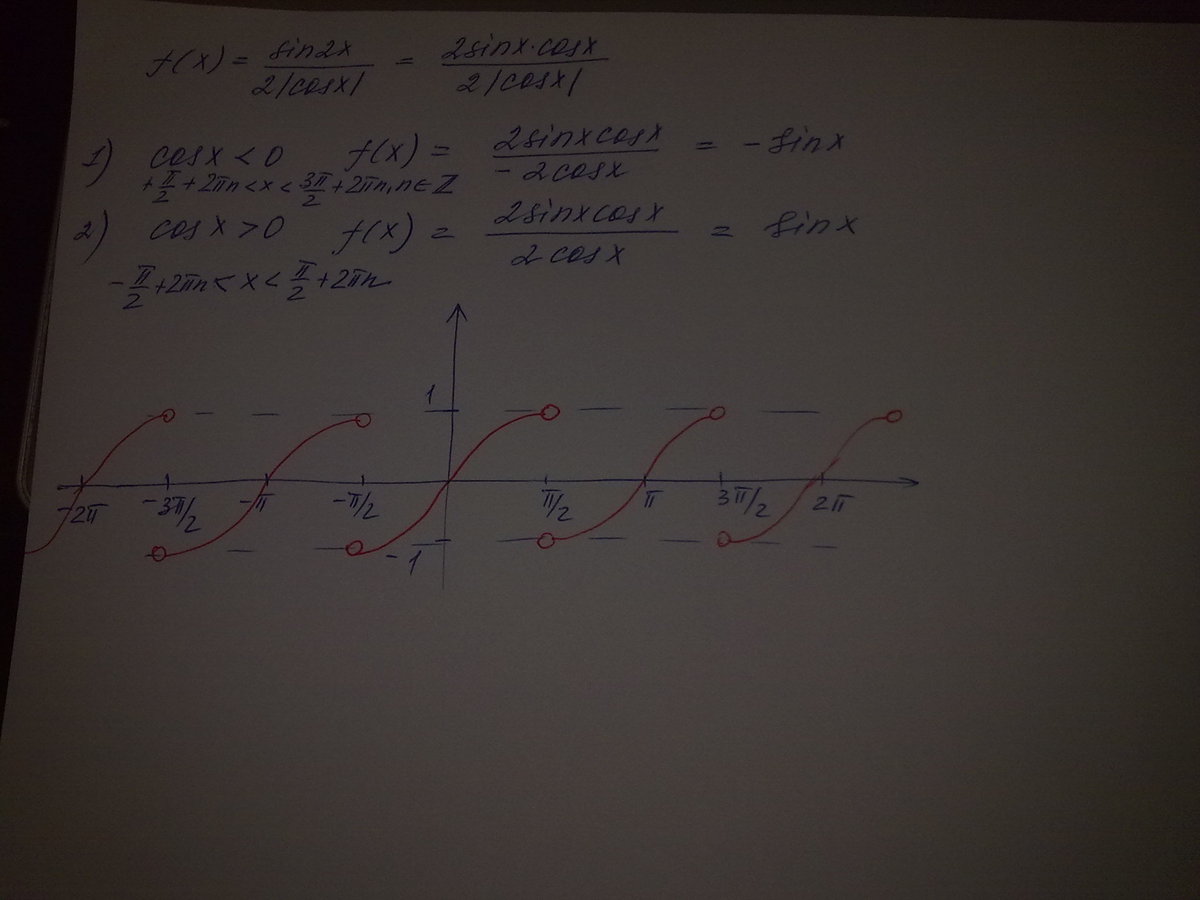 f(x) = sin2x / 2|cosx| = 2sinx·cosx / 2|cosx|
1) cosx < 0 f(x) = 2sinxcosx / -2cosx = -sinx
+π/2 + 2πn < x < 3π/2 + 2πn, n ∈ Z
2) cosx > 0 f(x) = 2sinxcosx / 2cosx = sinx
-π/2 + 2πn < x < π/2 + 2πn
1
-2π -3π/2 -π -π/2 π/2 π 3π/2 2π
-1